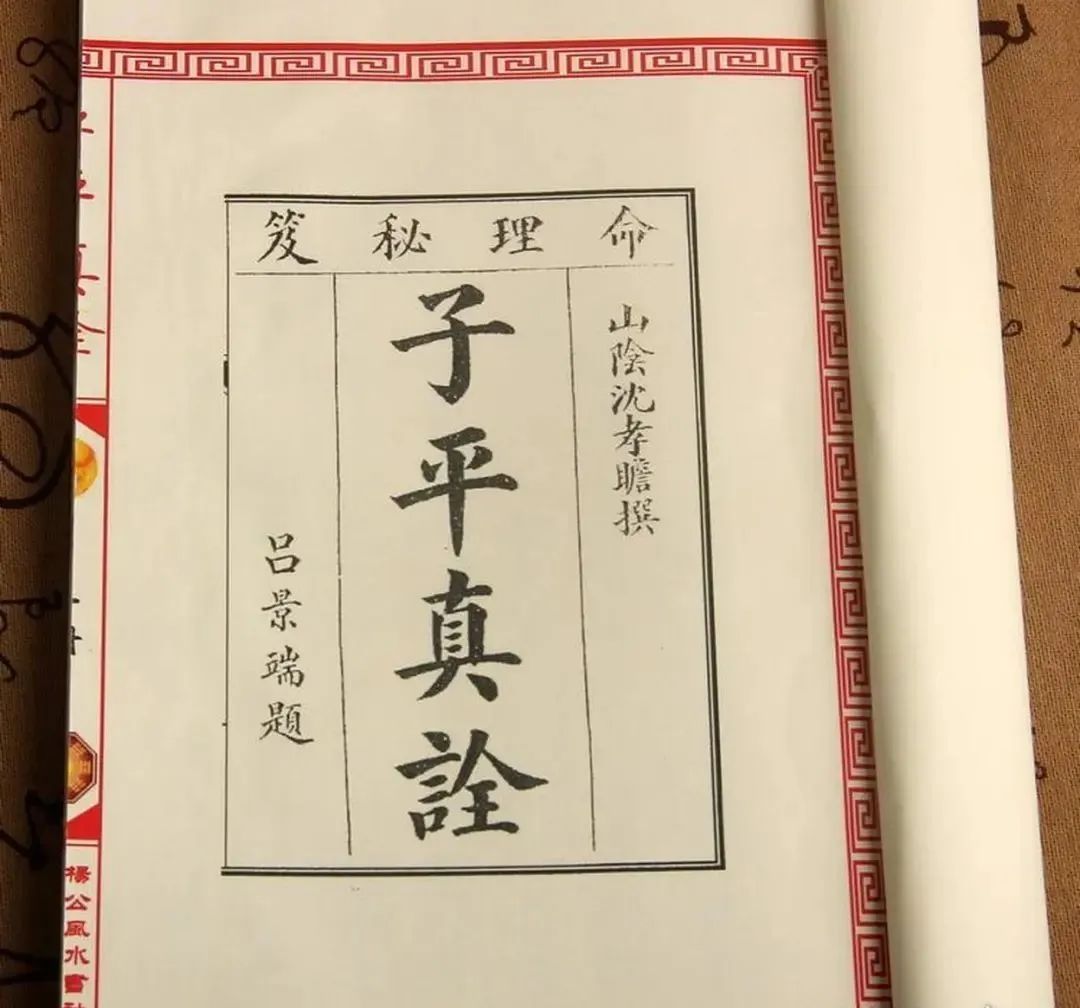 命理秘笈
山陰沈孝瞻撰
子平真詮
呂景端題
子平真詮
楊公風水書社